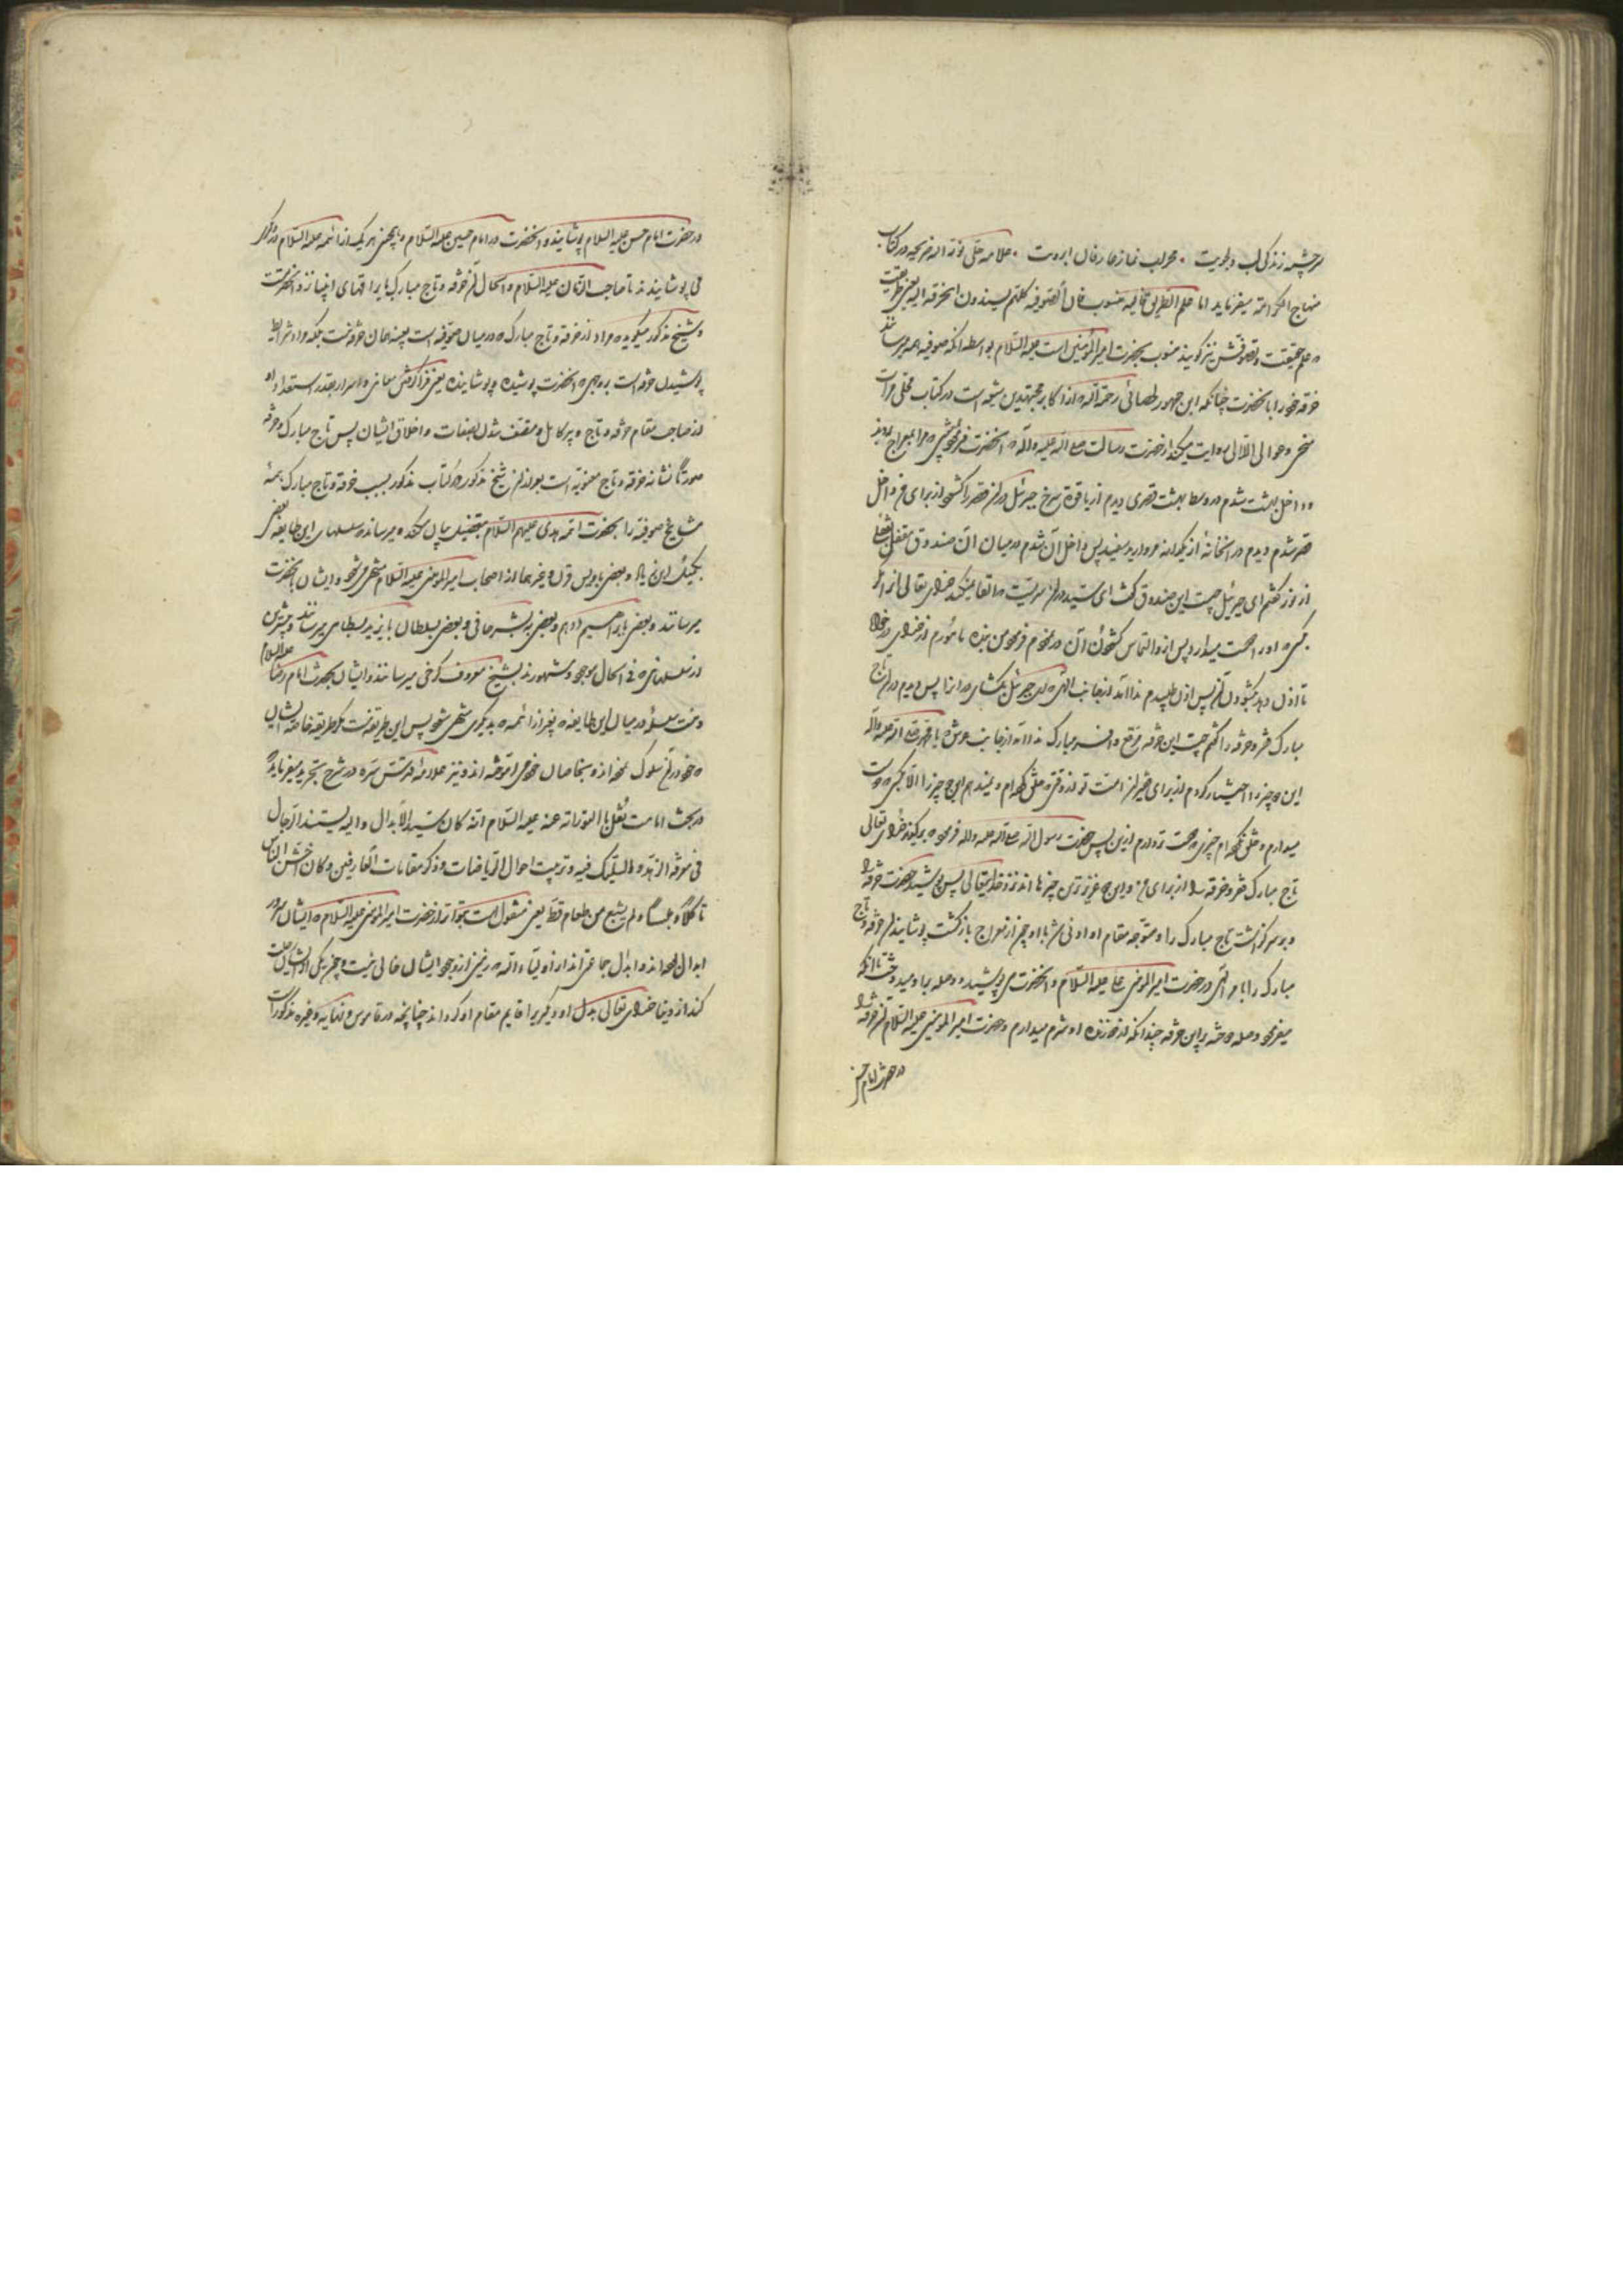 سرچشمه زندگی لب دلجویت • محراب نماز عارفان ابرویت • علامه حلی نور الله ضریحه در کتاب
منهاج الکرامه میفرماید اما علم الطریق فالیه منسوب فان الصوفیه کلهم یسندون الخرقة الیه یعنی علم طریقت
که علم حقیقت و تصوفش نیز گویند منسوب بحضرت امیر المؤمنین است علیه السلام بواسطه آنکه صوفیه همه میرسانند
خرقه خود را بانحضرت چنانکه ابن جمهور لحصائی رحمه الله که از اکابر مجتهدین شیعه است در کتاب مجلی مرآت
منجی و عوالی اللآلی روایت میکند از حضرت رسالت صلی الله علیه و آله که آنحضرت فرمود شبی که مرا بمعراج بردند
داخل بهشت شدم در وسط بهشت قصری دیدم از یاقوت سرخ جبرئیل در آن قصر را گشود از برای من داخل
قصر شدم دیدم در آن خانهٔ از یکدانه مروارید سفید پس داخل آن شدم در میان آن صندوق مقفل بقفلی
از نور گفتم ای جبرئیل چیست این صندوق گفت ای سید در آن سریست که اعطا نمیکند خدای تعالی آنرا مگر
بکسی که او را دوست میدارد پس از و التماس گشودن آن در نمودم فرمود من بنده مامورم از خدای در خواه
تا اذن دهد بگشودن آن پس اذن طلبیدم ندا آمد از جانب الهی که ای جبرئیل بگشای در آنرا پس دیدم در آن تاج
مبارک فقر و خرقه را گفتم چیست این خرقه مرقع و افسر مبارک ندا آمد از جانب عرش که یا محمد صلی الله علیه و آله
این دو چیز را اختیار کردم از برای تو و از امت تو از وقتی که خلق کرده‌ام و نمیدهم این دو چیز را الا بکسی که دوست
میدارم و خلق نکرده‌ام چیزی که دوست تر دارم ازین پس حضرت رسول الله صلی الله علیه و آله فرمود که برگزید خدای تعالی
تاج مبارک فقر و خرقه را از برای من و این دو عزیزترین چیزها اند نزد خدایتعالی پس پوشید حضرت خرقه را
و بر سر گذاشت تاج مبارک را و متوجه مقام او ادنی شد با او چون از معراج بازگشت پوشانید آن خرقه و تاج
مبارک را بامر الهی در حضرت امیر المؤمنین علی علیه السلام و آنحضرت می پوشید و وصله بر او میدوخت تا آنکه
میفرمود وصله دوختم بر این خرقه چندانکه از دوزنده او شرم میدارم و حضرت امیر المؤمنین علیه السلام آن خرقه را
در حضرت امام حسن
در حضرت امام حسن علیه السلام پوشانید و آنحضرت در امام حسین علیه السلام و همچنین هر یک از ائمه علیه السلام در دیگر
می پوشانیدند تا صاحب الزمان علیه السلام و الحال آن خرقه و تاج مبارک با میراثهای انبیا نزد آنحضرتست
و شیخ مذکور میگوید که مراد از خرقه و تاج مبارک که در میان صوفیه است نه بعینه همان خرقه است بلکه مراد شرایط
پوشیدن خرقه است بر وجهی که آنحضرت پوشیده و پوشانیده یعنی فرا گرفتن معانی و اسرار بقدر استعداد او
از صاحب مقام خرقه و تاج و پیر کامل و متصف شدن بصفات و اخلاق ایشان پس تاج مبارک و خرقه
صورتاً نشانه خرقه و تاج معنویه است بعد از آن شیخ مذکور در کتاب مذکور سبب خرقه و تاج مبارک همه
مشایخ صوفیه را بحضرت ائمه هدی علیهم السلام بتفصیل بیان میکند و میرساند و سلسلهای این طایفه بعضی
بکمیل ابن زیاد و بعضی باویس قرن و غیرهما از اصحاب امیر المؤمنین علیه السلام منتهی میشود و ایشان بآنحضرت
میرسانند و بعضی بابراهیم ادهم و بعضی ببشر حافی و بعضی بسلطان بایزید بسطامی میرسانند و بیشترین
از سلسلهای که فی الحال موجود و مشهورند بشیخ معروف کرخی میرسانند و ایشان بحضرت امام رضا علیه السلام
و نیست سلسلهٔ در میان این طایفه که بغیر از ائمه بدیگری منتهی شود پس این طریقت نیست مگر طریقه خاصه ایشان
که خود در آن سلوک نموده‌اند و بخاصان خود آموخته‌اند و نیز علامه قدس سره در شرح تجرید میفرماید که
در بحث امامت نقل بالتواتر عنه علیه السلام انه کان سید الابدال و الیه یستند الرجال
فی معرفة الزهد و التسلیک فیه و ترتیب احوال الریاضات و ذکر مقامات العارفین و کان اخشن الناس
ماکلاً و ملبساً و لم یشبع من طعام قط یعنی منقول است بتواتر از حضرت امیر المؤمنین علیه السلام که ایشان سرور
ابدال بوده‌اند و ابدال جماعتی اند از اولیاء الله که زمین از وجود ایشان خالی نیست و چون یکی از ایشان رحلت
کند از دنیا خدای تعالی بدل او دیگری را قایم مقام او گرداند چنانچه در قاموس و نهایه و غیره مذکور است